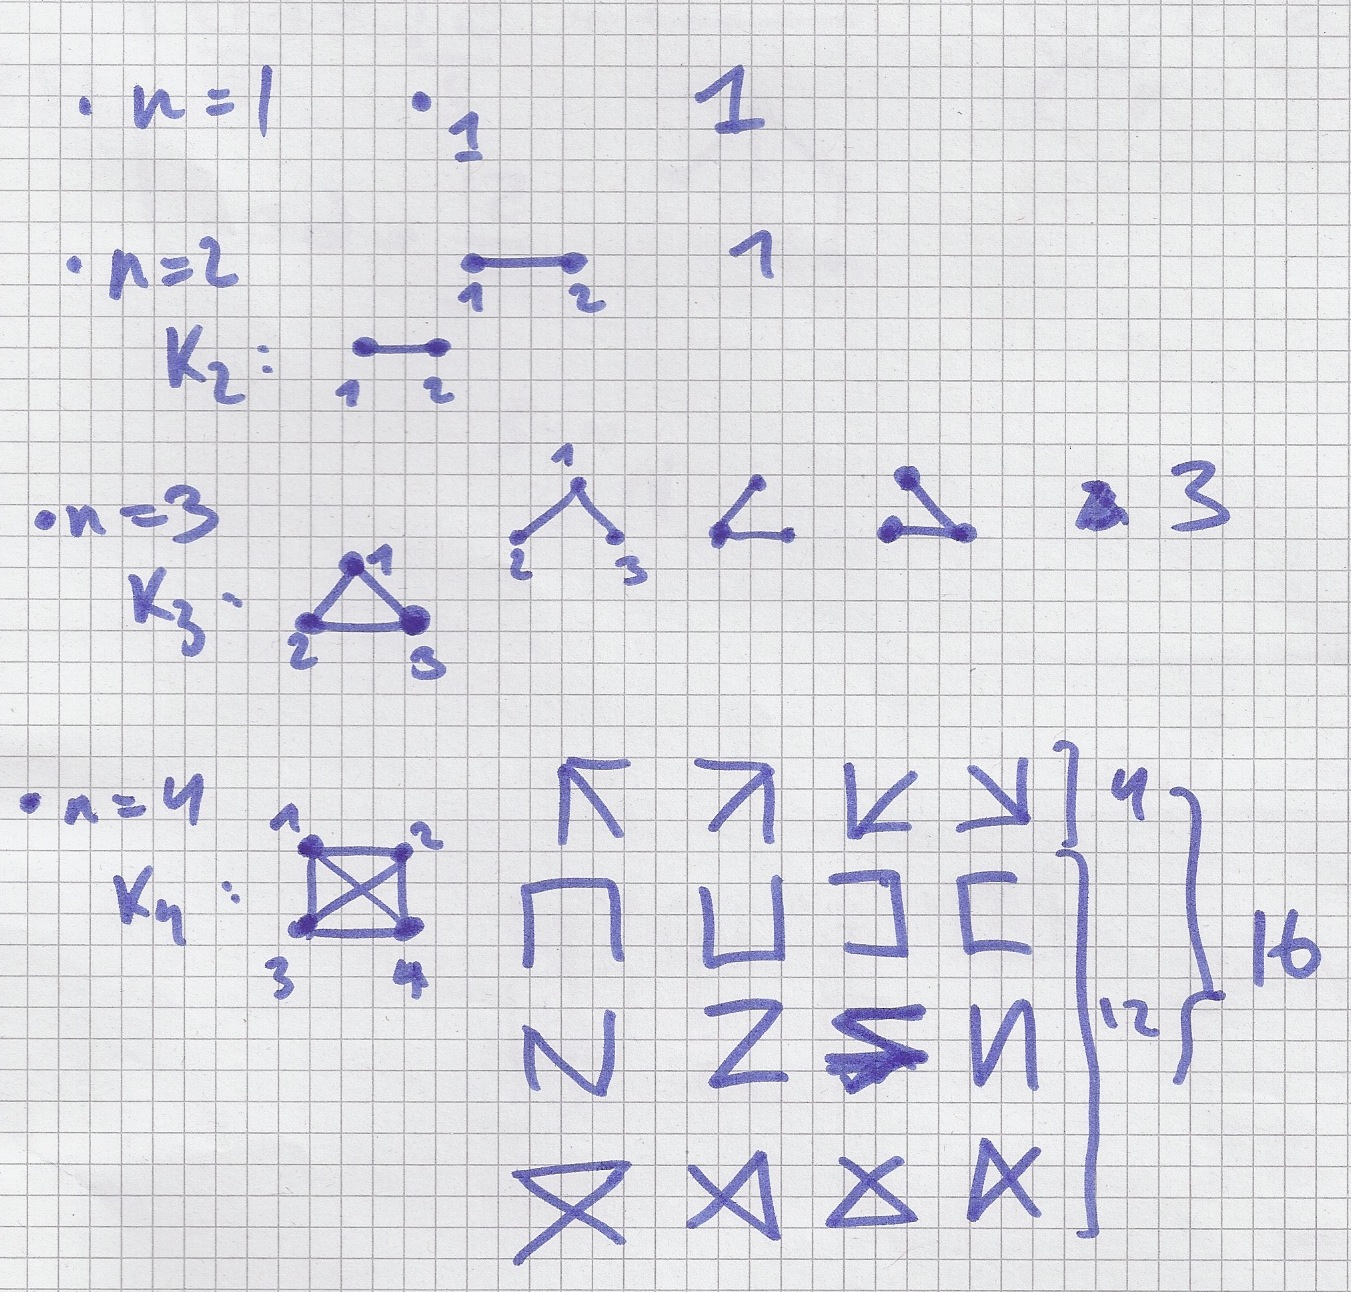 • n=1 1 1
• n=2 1 2 1
K₂: 1 2
• n=3 1 2 3 3
K₃: 1 2 3
• n=4 1 2 4
K₄: 3 4 12 16